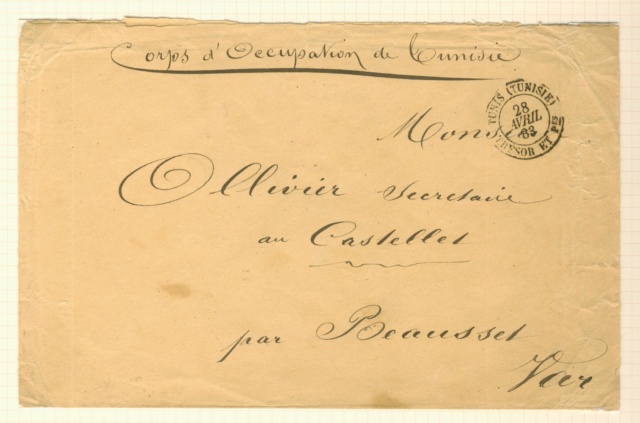 Corps d'Occupation de Tunisie
TUNIS (TUNISIE)
28
AVRIL
83
TRESOR ET PES
Monsr
Ollivier Secretaire
au Castellet
par Beausset
Var